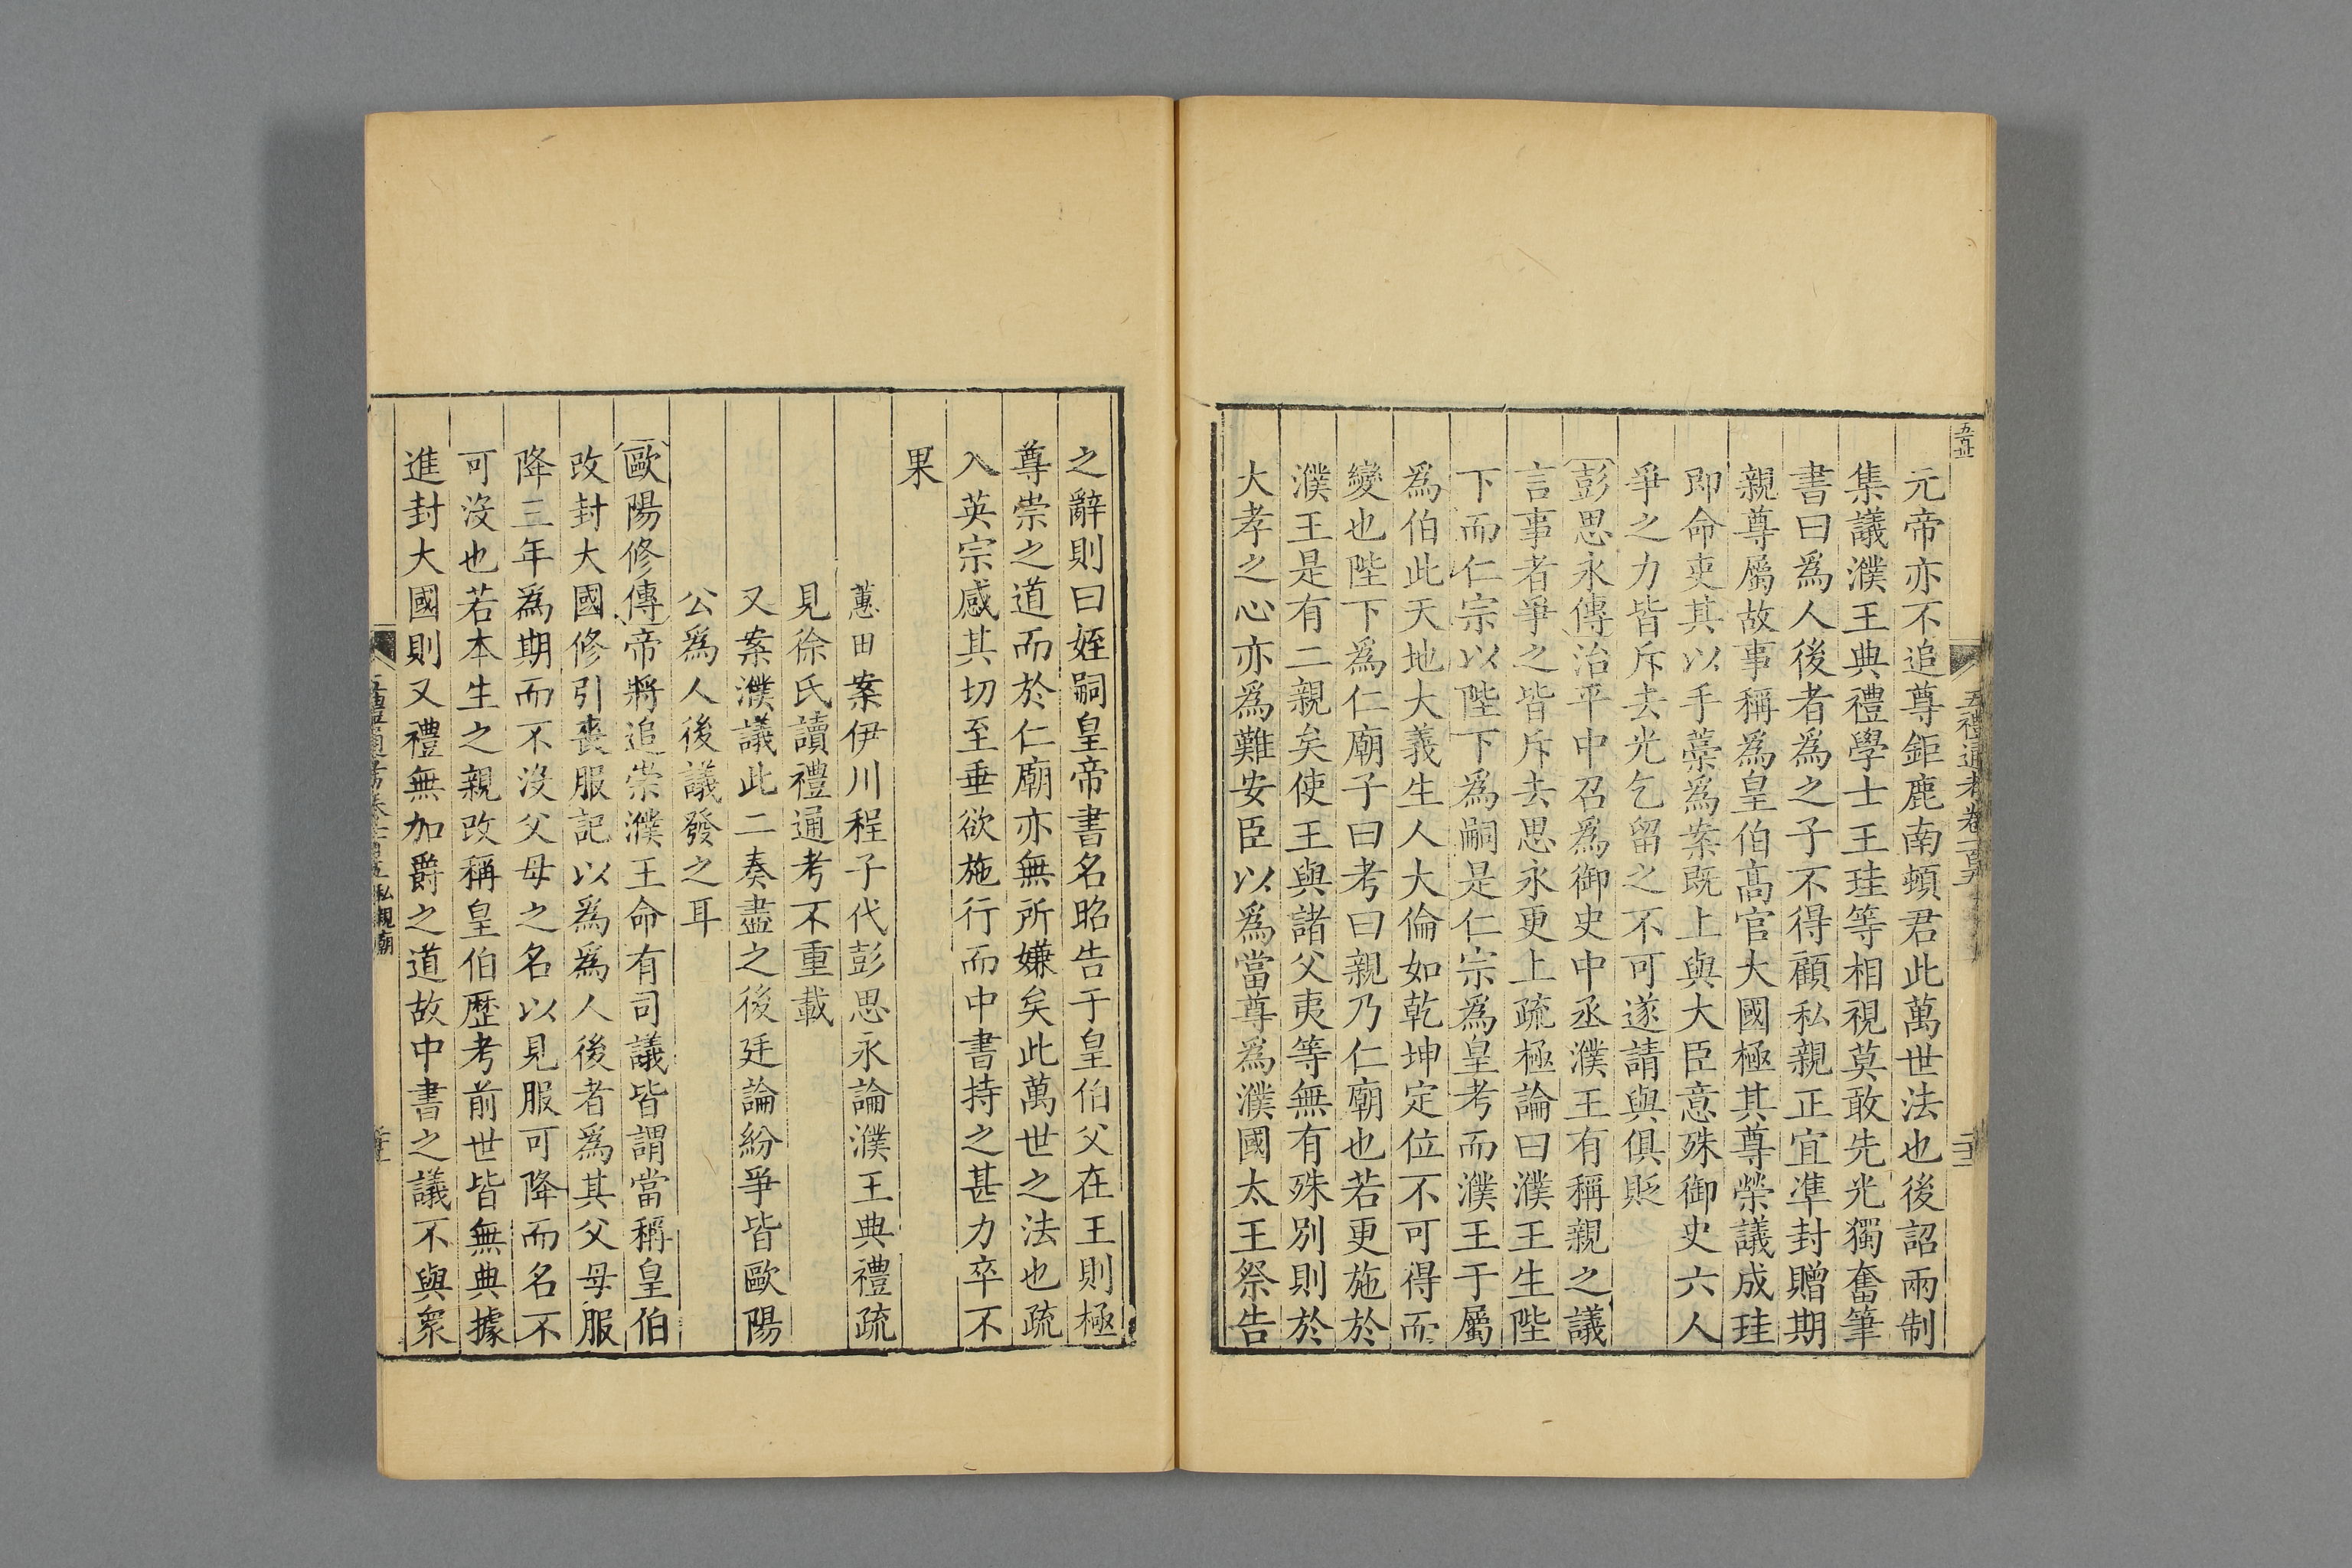 五禮通考卷一百五
元帝亦不追尊鉅鹿南頓君此萬世法也後詔兩制
集議濮王典禮學士王珪等相視莫敢先光獨奮筆
書曰爲人後者爲之子不得顧私親正宜準封贈期
親尊屬故事稱爲皇伯高官大國極其尊榮議成珪
即命吏其以手藁爲案既上與大臣意殊御史六人
爭之力皆斥去光乞留之不可遂請與俱貶
彭思永傳治平中召爲御史中丞濮王有稱親之議
言事者爭之皆斥去思永更上疏極論曰濮王生陛
下而仁宗以陛下爲嗣是仁宗爲皇考而濮王于屬
爲伯此天地大義生人大倫如乾坤定位不可得而
變也陛下爲仁廟子曰考曰親乃仁廟也若更施於
濮王是有二親矣使王與諸父夷等無有殊別則於
大孝之心亦爲難安臣以爲當尊爲濮國太王祭告
之辭則曰姪嗣皇帝書名昭告于皇伯父在王則極
尊崇之道而於仁廟亦無所嫌矣此萬世之法也疏
入英宗感其切至垂欲施行而中書持之甚力卒不
果
蕙田案伊川程子代彭思永論濮王典禮疏
見徐氏讀禮通考不重載
又案濮議此二奏盡之後廷論紛爭皆歐陽
公爲人後議發之耳
歐陽修傳帝將追崇濮王命有司議皆謂當稱皇伯
改封大國修引喪服記以爲爲人後者爲其父母服
降三年爲期而不沒父母之名以見服可降而名不
可沒也若本生之親改稱皇伯歷考前世皆無典據
進封大國則又禮無加爵之道故中書之議不與衆
私親廟